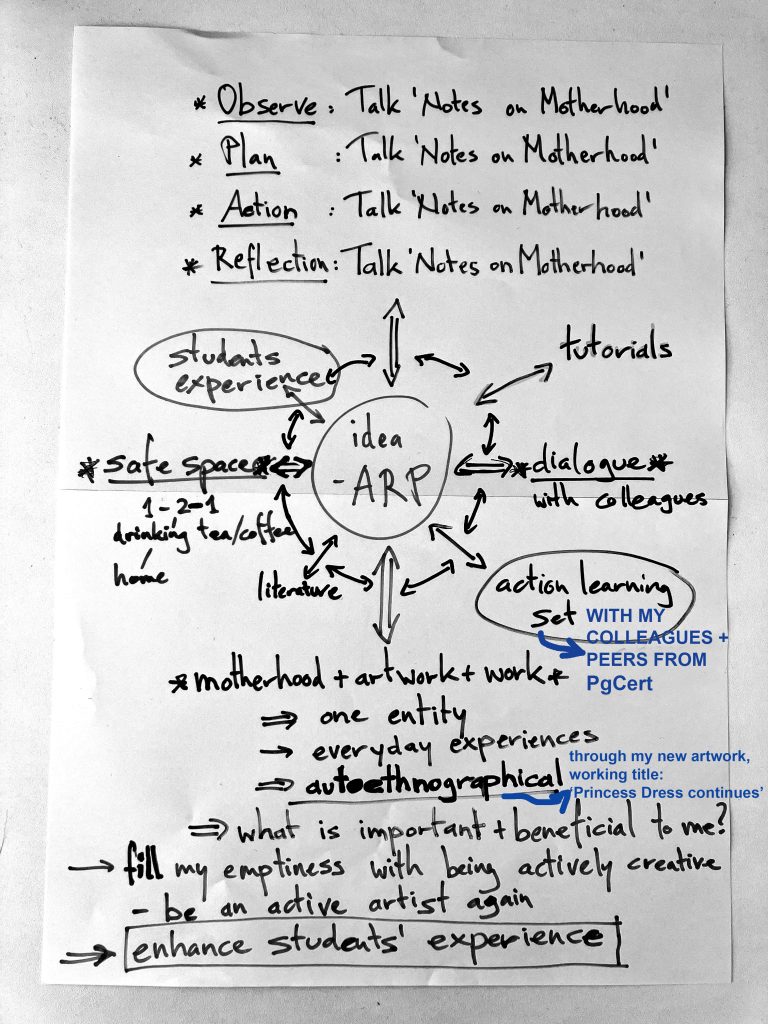 * Observe : Talk 'Notes on Motherhood'
* Plan : Talk 'Notes on Motherhood'
* Action : Talk 'Notes on Motherhood'
* Reflection : Talk 'Notes on Motherhood'
students
experience
tutorials
idea
- ARP
* safe space *
1-2-1
drinking tea/coffee
home
* dialogue *
with colleagues
literature
action learning
set
WITH MY
COLLEAGUES +
PEERS FROM
PgCert
* motherhood + artwork + work *
⇒ one entity
→ everyday experiences
⇒ autoethnographical
through my new artwork,
working title:
'Princess Dress continues'
⇒ what is important + beneficial to me?
→ fill my emptiness with being actively creative
- be an active artist again
⇒ enhance students' experience